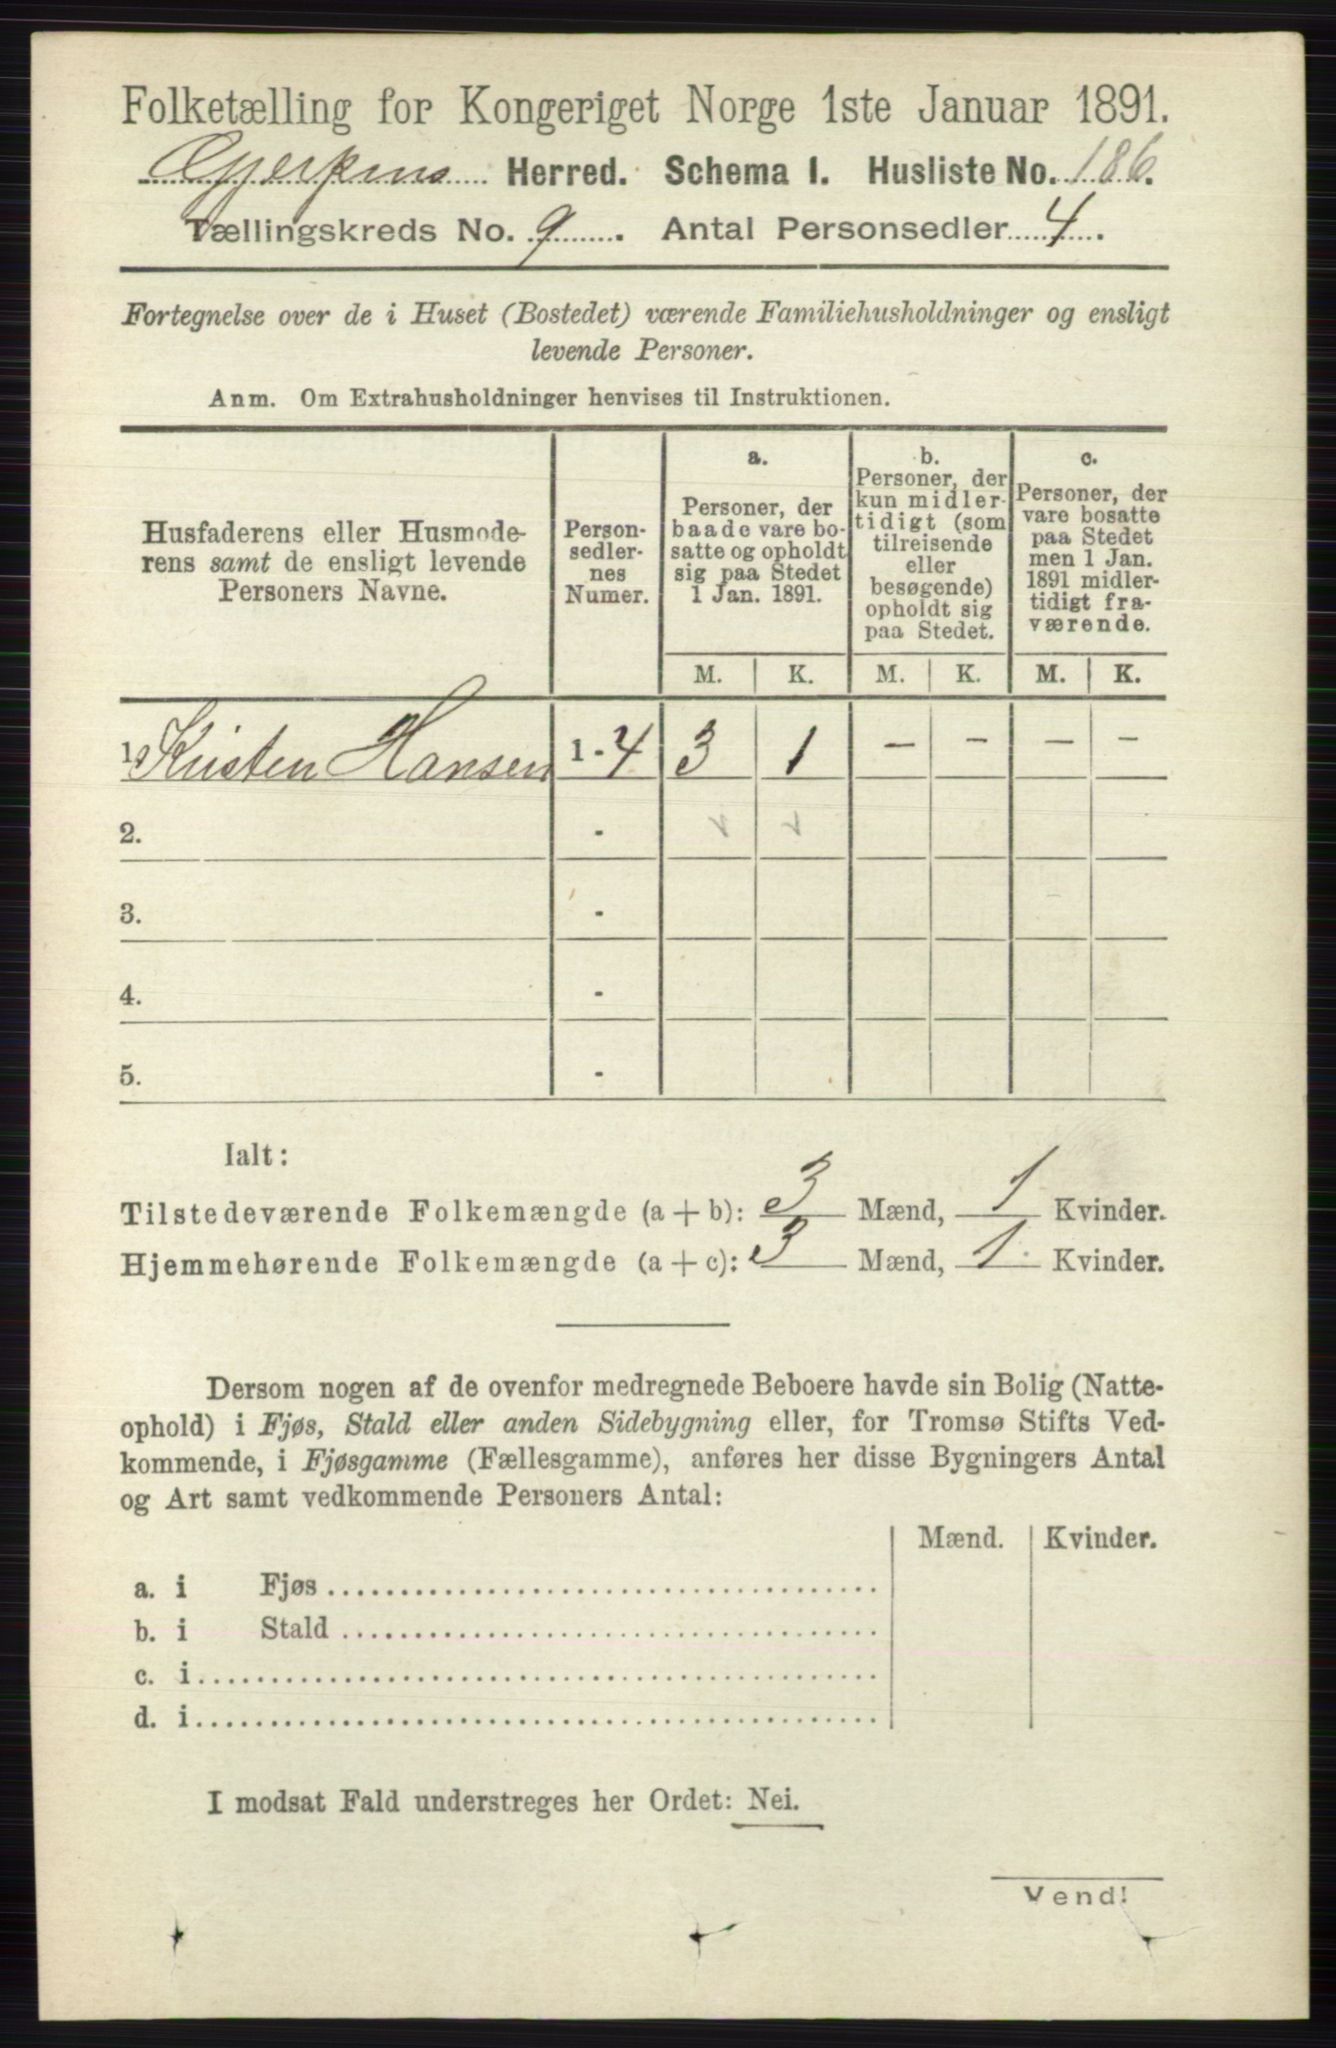 Folketælling for Kongeriget Norge 1ste Januar 1891.
Gjerpens Herred. Schema I. Husliste No. 186.
Tællingskreds No. 9. Antal Personsedler 4.
Fortegnelse over de i Huset (Bostedet) værende Familiehusholdninger og ensligt
levende Personer.
Anm. Om Extrahusholdninger henvises til Instruktionen.
Husfaderens eller Husmode-
rens samt de ensligt levende
Personers Navne.
Person-
sedler-
nes
Numer.
a.
Personer, der
baade vare bo-
satte og opholdt
sig paa Stedet
1 Jan. 1891.
b.
Personer, der
kun midler-
tidigt (som
tilreisende
eller
besøgende)
opholdt sig
paa Stedet.
c.
Personer, der
vare bosatte
paa Stedet
men 1 Jan.
1891 midler-
tidigt fra-
værende.
M. K. M. K. M. K.
1. Kristen Hansen 1 - 4 3 1 - - - -
2. -
3. -
4. -
5. -
Ialt:
Tilstedeværende Folkemængde (a + b): 3 Mænd, 1 Kvinder.
Hjemmehørende Folkemængde (a + c): 3 Mænd, 1 Kvinder.
Dersom nogen af de ovenfor medregnede Beboere havde sin Bolig (Natte-
ophold) i Fjøs, Stald eller anden Sidebygning eller, for Tromsø Stifts Ved-
kommende, i Fjøsgamme (Fællesgamme), anføres her disse Bygningers Antal
og Art samt vedkommende Personers Antal:
Mænd. Kvinder.
a. i Fjøs
b. i Stald
c. i
d. i
I modsat Fald understreges her Ordet: Nei.
Vend!